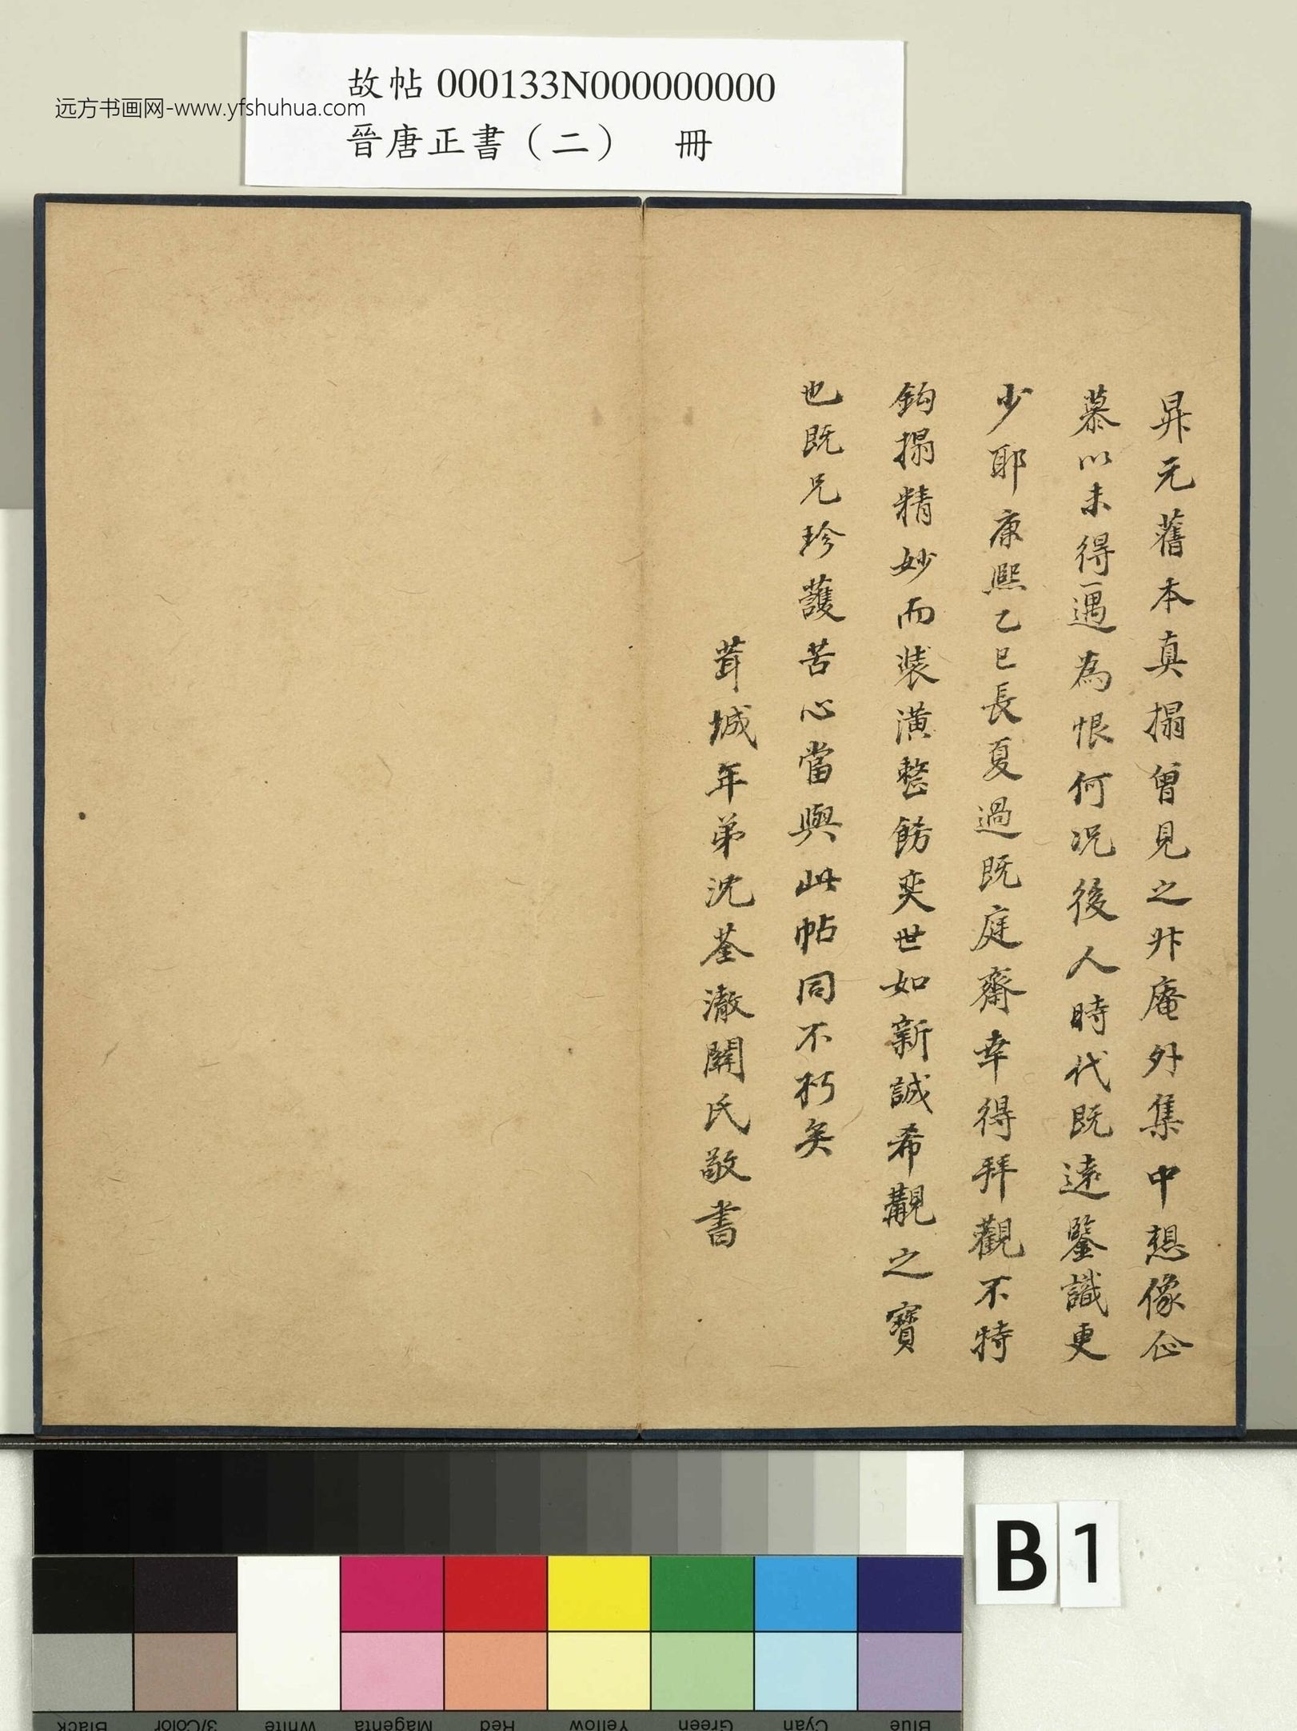 故帖 000133N000000000
晉唐正書（二）　冊
远方书画网-www.yfshuhua.com
昇元舊本真搨曾見之升庵外集中想像企
慕以未得一遇為恨何况後人時代既遠鑒識更
少耶康熙乙巳長夏過既庭齋幸得拜觀不特
鈎搨精妙而裝潢整飭奕世如新誠希覯之寶
也既兄珍護苦心當與此帖同不朽矣
茸城年弟沈荃澈閒氏敬書
B 1
Black 3/Color White Magenta Red Yellow Green Cyan Blue